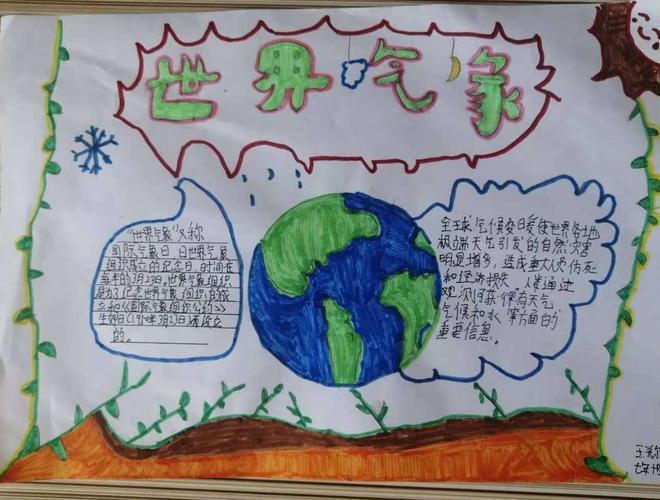 世界气象
"世界气象"又称
国际气象日 日世界气象
组织成立的纪念日,时间在
每年的3月23日。世界气象组织
是为了纪念世界气象组织的成
立和《国际气象组织公约》
生效日(1950年3月23日)而设立
的。
全球气候变暖使世界各地
极端天气引发的自然灾害
明显增多,造成重大人员伤死
和经济损失。人类通过
观测获得有天气
气候和水等方面的
重要信息。